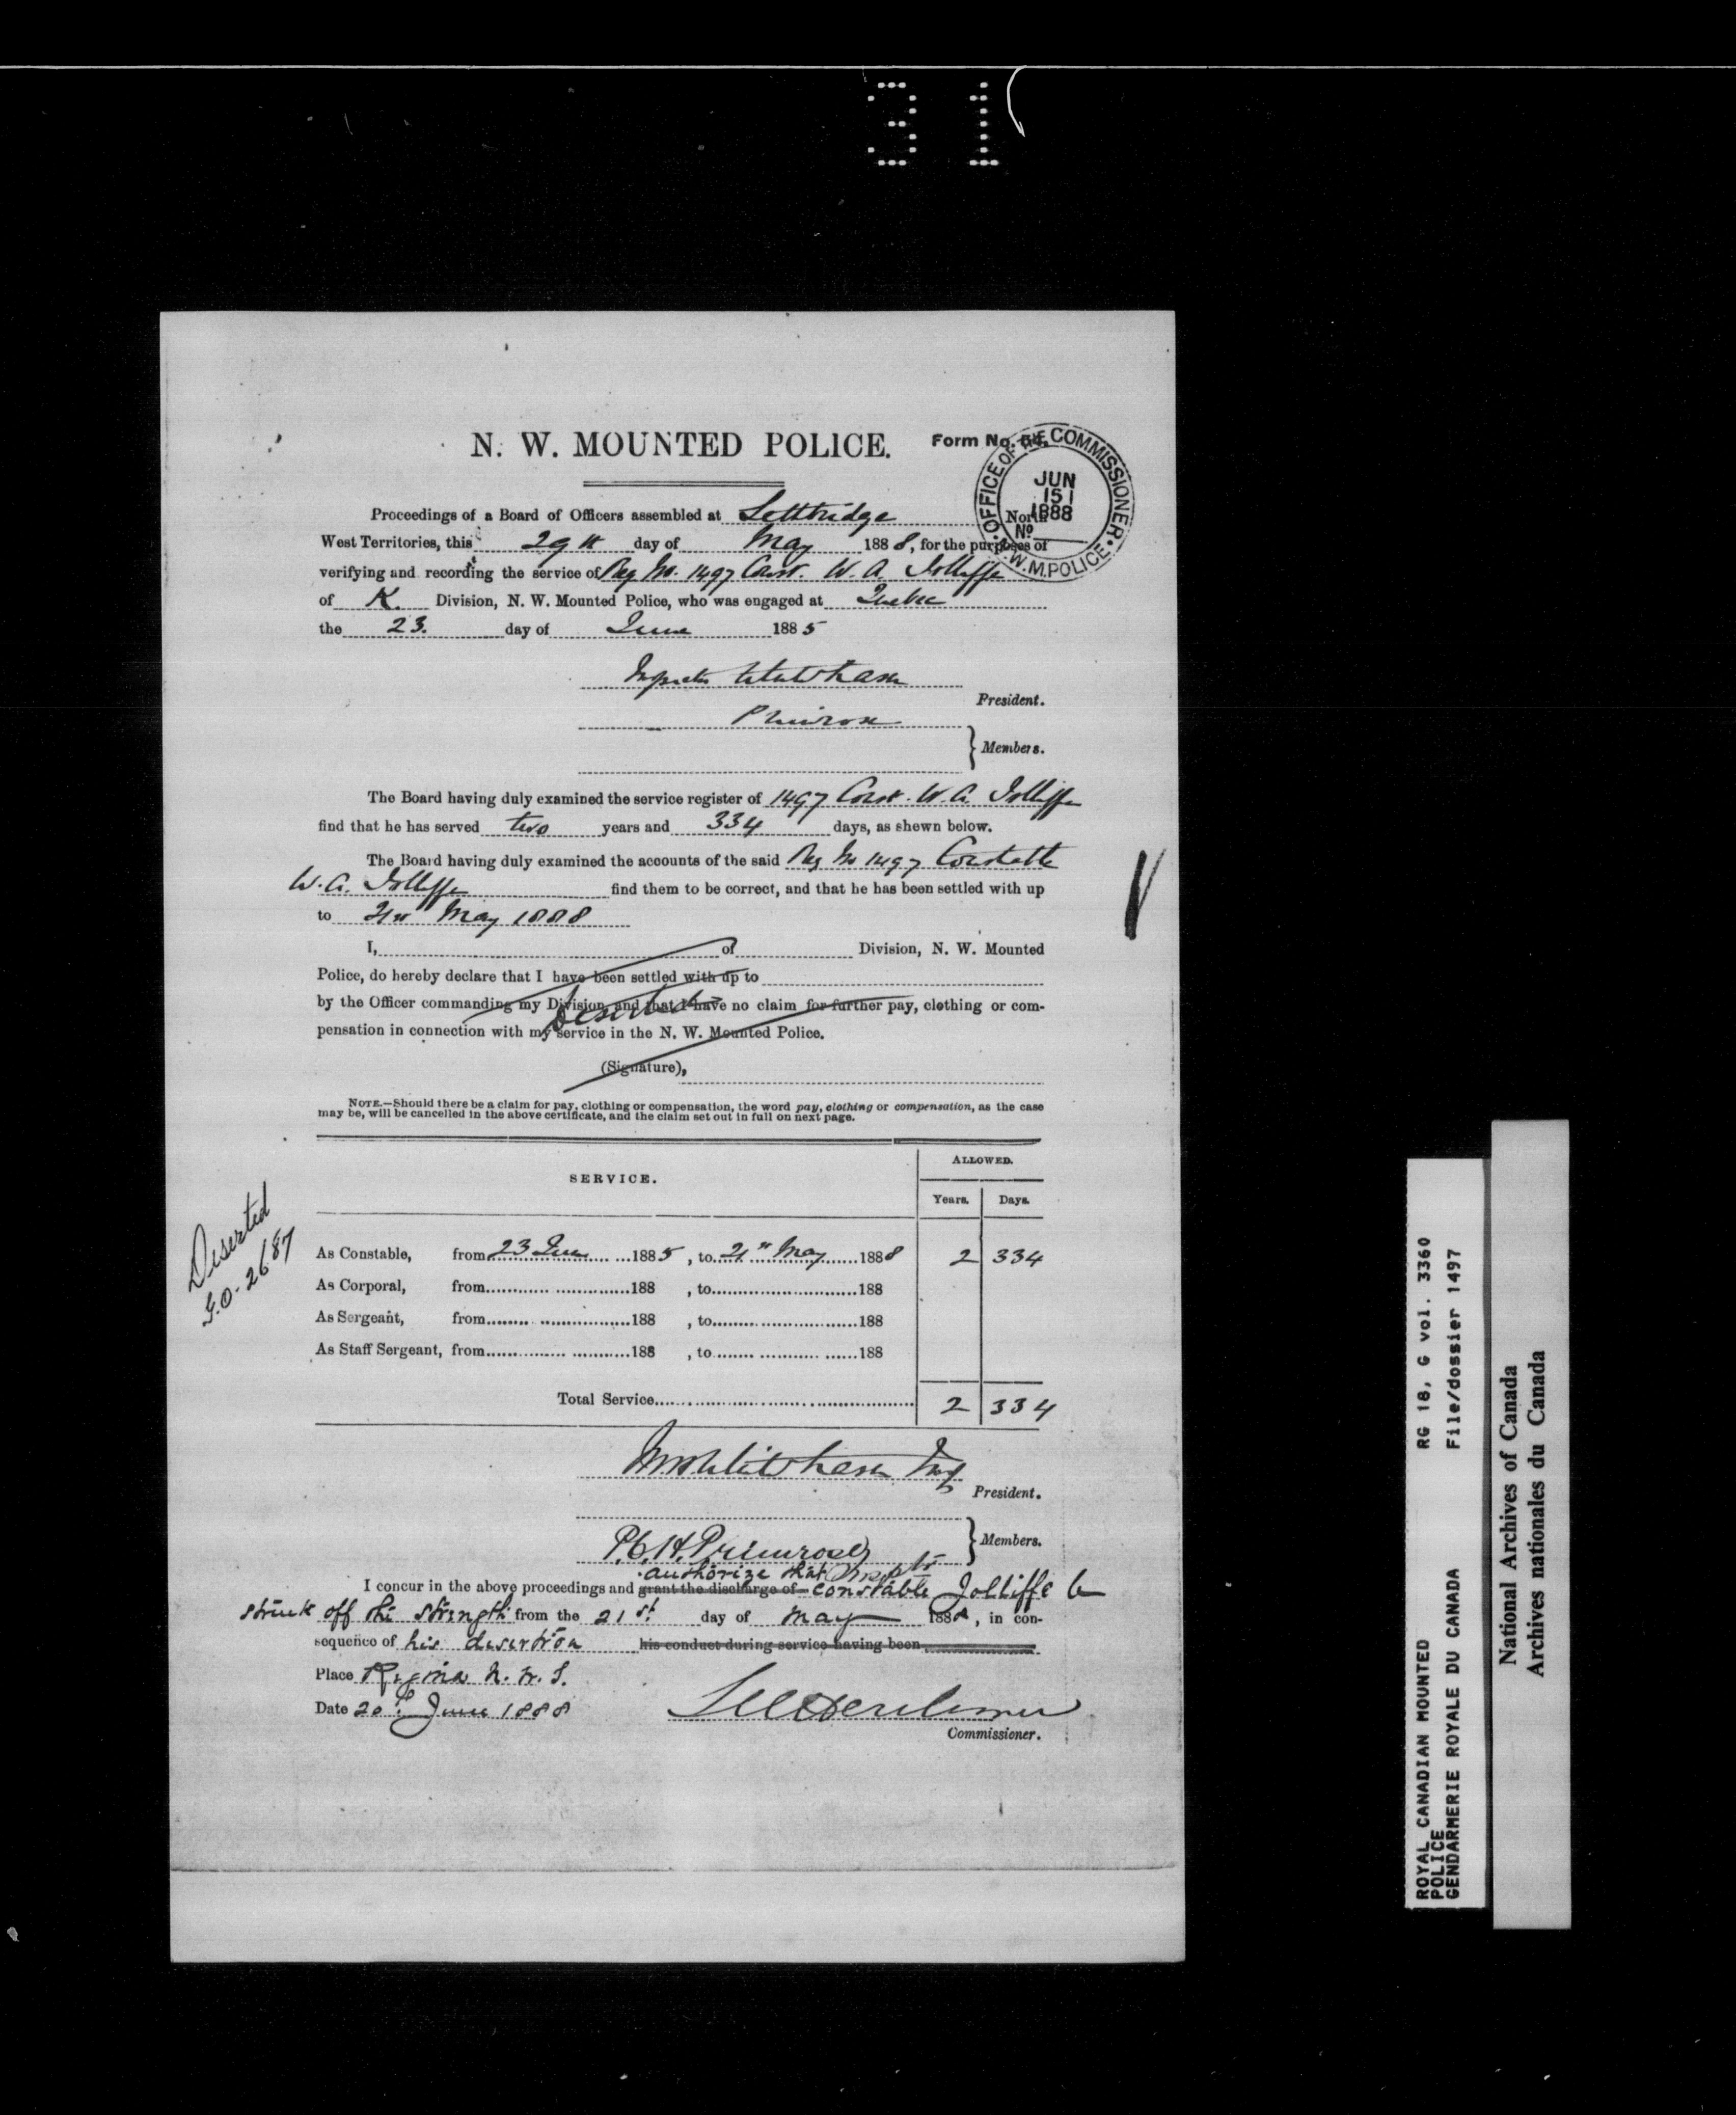 31
N. W. MOUNTED POLICE.
Form No. 54.
OFFICE OF THE COMMISSIONER
JUN
15
1888
No
N.W.M. POLICE
Proceedings of a Board of Officers assembled at Lethbridge North
West Territories, this 29th day of May 1888, for the purposes of
verifying and recording the service of Reg No. 1497 Const. W. A. Jolliffe
of K. Division, N. W. Mounted Police, who was engaged at Quebec
the 23. day of June 1885
Inspector
President.
Primrose
Members.
The Board having duly examined the service register of 1497 Const. W. A. Jolliffe
find that he has served two years and 334 days, as shewn below.
The Board having duly examined the accounts of the said Reg No 1497 Constable
W. A. Jolliffe find them to be correct, and that he has been settled with up
to 21st May 1888
I, of Division, N. W. Mounted
Police, do hereby declare that I have been settled with up to
by the Officer commanding my Division, and that I have no claim for further pay, clothing or com-
Deserted
pensation in connection with my service in the N. W. Mounted Police.
(Signature),
NOTE.—Should there be a claim for pay, clothing or compensation, the word pay, clothing or compensation, as the case
may be, will be cancelled in the above certificate, and the claim set out in full on next page.
SERVICE.
ALLOWED.
Years. Days.
Deserted
G.O. 2687
As Constable, from 23 June 1885, to 21st May 1888 2 334
As Corporal, from 188 , to 188
As Sergeant, from 188 , to 188
As Staff Sergeant, from 188 , to 188
Total Service 2 334
Insp
President.
P.C.H. Primrose
Members.
authorize that
I concur in the above proceedings and grant the discharge of constable Jolliffe be
struck off the strength from the 21st day of May 1888, in con-
sequence of his desertion his conduct during service having been
Place Regina N. W. T.
Date 20th June 1888
Commissioner.
ROYAL CANADIAN MOUNTED
POLICE
GENDARMERIE ROYALE DU CANADA
RG 18, G vol. 3360
File/dossier 1497
National Archives of Canada
Archives nationales du Canada